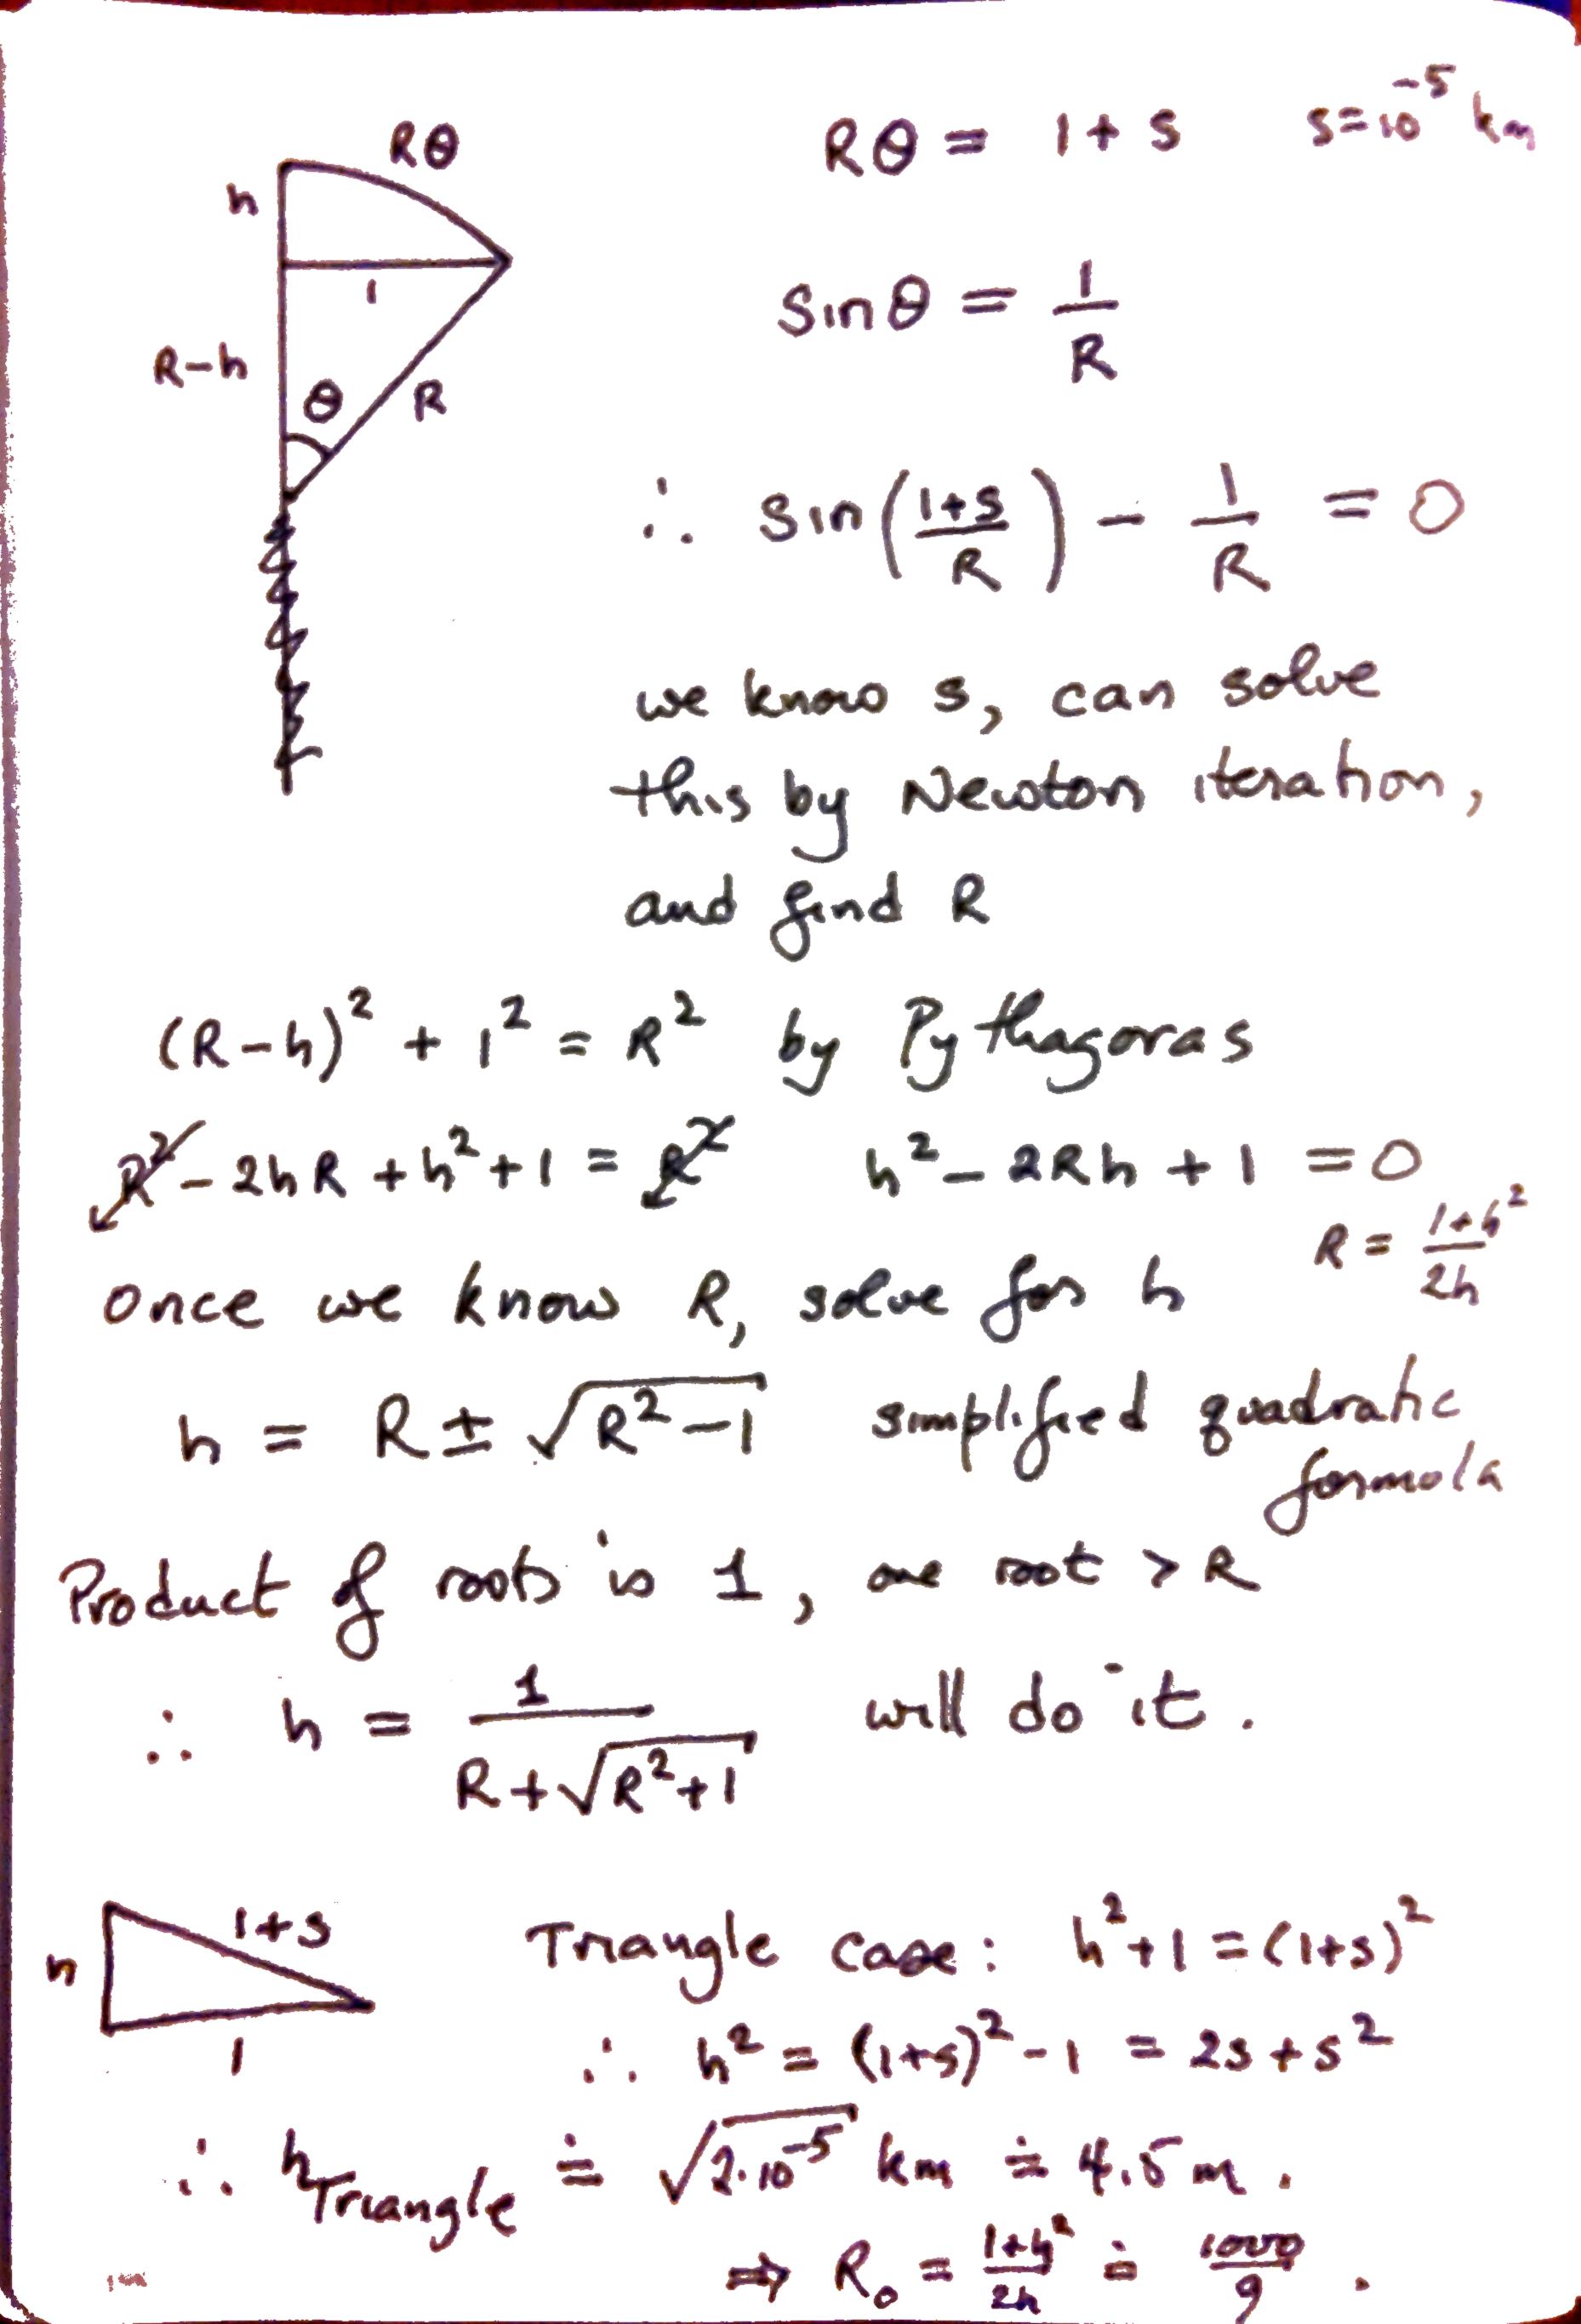 Rθ
h
1
R-h
θ
R
Rθ = 1+s    s=10^-5 km
sinθ = 1/R
∴ sin((1+s)/R) - 1/R = 0
we know s, can solve
this by Newton iteration,
and find R
(R-h)² + 1² = R² by Pythagoras
R² - 2hR + h² + 1 = R²    h² - 2Rh + 1 = 0
R = (1+h²)/2h
once we know R, solve for h
h = R ± √(R²-1)    simplified quadratic
formula
Product of roots is 1, one root > R
∴ h = 1/(R+√(R²+1)) will do it.
h
1+s
1
Triangle case: h²+1 = (1+s)²
∴ h² = (1+s)² - 1 = 2s + s²
∴ h_Triangle ≐ √(2·10^-5) km ≐ 4.5 m.
⇒ R₀ = (1+h²)/2h ≐ 1000/9.